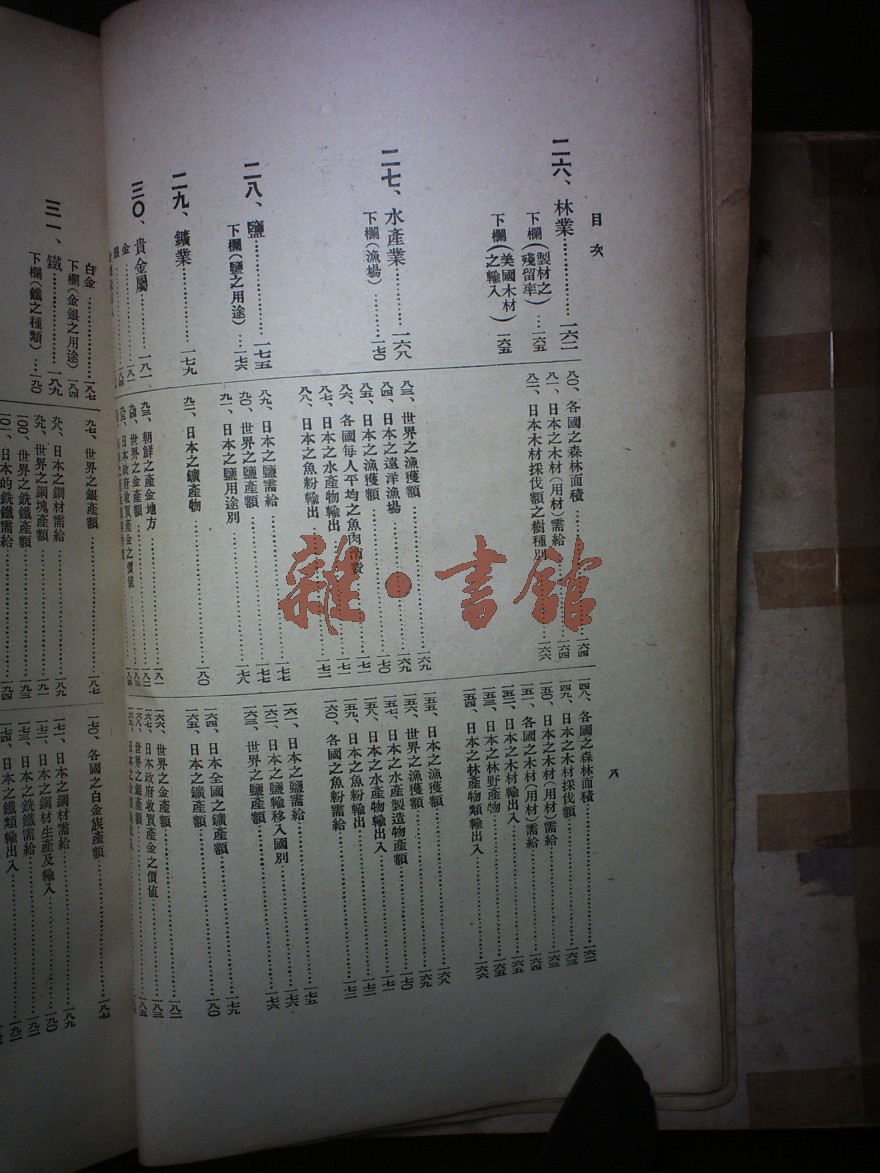 目次
二六、林業…………一六二
下欄(製材之殘留率)…一六五
下欄(美國木材之輸入)一六五
二七、水產業………一六八
下欄(漁場)…………一七〇
二八、鹽……………一七五
下欄(鹽之用途)…一七六
二九、鑛業…………一七九
三〇、貴金屬………一八一
金……………一八一
八〇、各國之森林面積…………一六四
八一、日本之木材(用材)需給…………一六四
八二、日本木材採伐額之樹種別…………一六六
八三、世界之漁獲額…………一六九
八四、日本之遠洋漁場…………一七〇
八五、日本之漁獲額…………一七一
八六、各國每人平均之魚肉消費…………一七一
八七、日本之水產物輸出…………一七二
八八、日本之魚粉輸出
八九、日本之鹽需給…………一七七
九〇、世界之鹽產額…………一七七
九一、日本之鹽用途別…………一七八
九二、日本之鑛產物…………一八〇
九三、朝鮮之產金地方…………一八一
九四、世界之金產額…………一八二
九五、日本政府收買產金之價值
一四八、各國之森林面積…………一六二
一四九、日本之木材採伐額…………一六三
一五〇、日本之木材(用材)需給…………一六三
一五一、各國之木材(用材)需給…………一六四
一五二、日本之木材輸出入…………一六五
一五三、日本之林野產物…………一六五
一五四、日本之林產物類輸出入…………一六六
一五五、日本之漁獲額…………一六八
一五六、世界之漁獲額…………一六九
一五七、日本之水產製造物產額…………一七〇
一五八、日本之水產物輸出入…………一七一
一五九、日本之魚粉輸出…………一七二
一六〇、各國之魚粉需給…………一七二
一六一、日本之鹽需給…………一七五
一六二、日本之鹽輸移入國別…………一七六
一六三、世界之鹽產額…………一七六
一六四、日本全國之鑛產額…………一七九
一六五、日本之鑛產額…………一八〇
一六六、世界之金產額…………一八二
一六七、日本政府收買產金之價值…………一八三
一六八、世界之銀產額…………一八五
八
白金……………一八七
下欄(金銀之用途)一八四
三一、鐵……………一八九
下欄(鐵之種類)…一九〇
九七、世界之銀產額…………一八七
九八、日本之鋼材需給…………一八九
九九、世界之鋼塊產額…………一九一
一〇〇、世界之銑鐵產額…………一九三
一〇一、日本的銑鐵需給…………一九四
一七〇、各國之白金族產額…………一八七
一七一、日本之鋼材需給…………一八九
一七二、日本之鋼材生產及輸入…………一九〇
一七三、日本之銑鐵需給…………一九二
一七四、日本之鐵類輸出入…………一九二
雜·書館